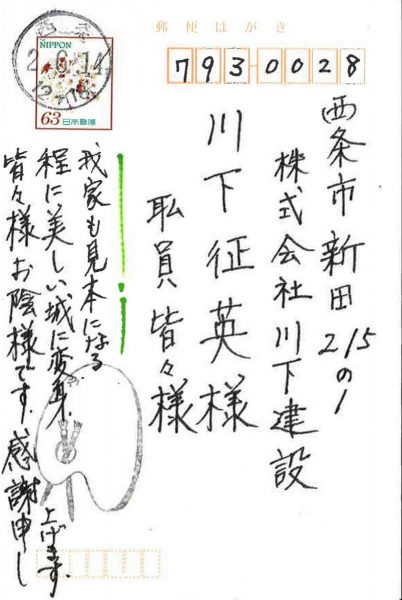 郵便はがき
793-0028
西条市新田215の1
株式会社川下建設
川下征英様
職員皆々様
我家も見本になる
程に美しい城に変身
皆々様お陰様です、感謝申し
上げます。
NIPPON
63日本郵便